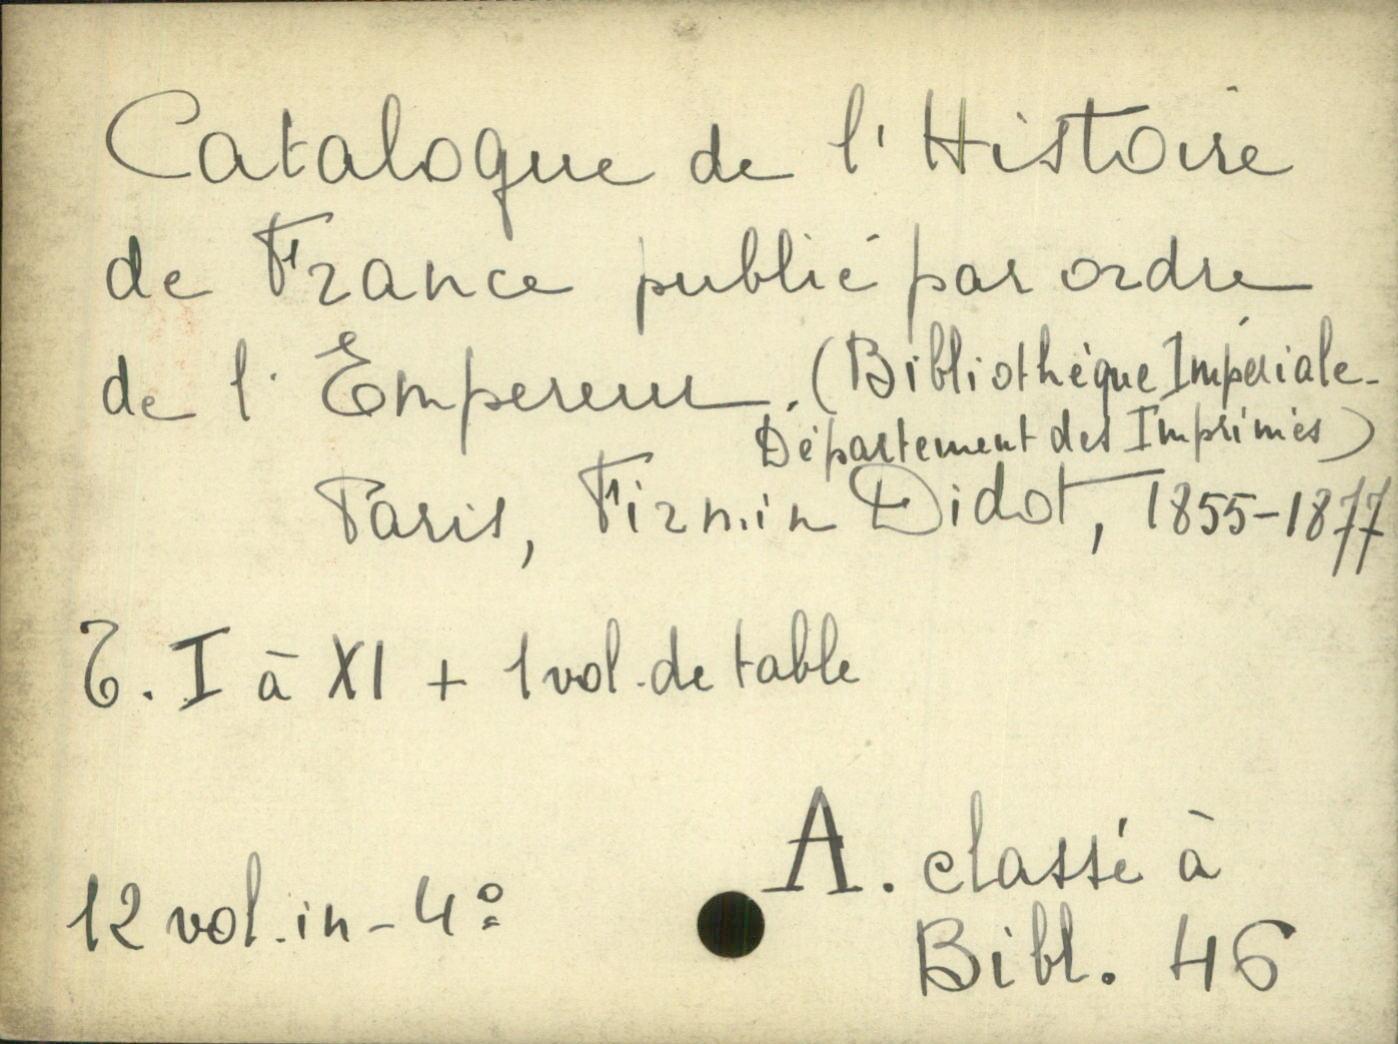 Catalogue de l'Histoire
de France publié par ordre
de l'Empereur. (Bibliothèque Impériale-
Département des Imprimés)
Paris, Firmin Didot, 1855-1877
T. I à XI + 1 vol. de table
12 vol. in-4º
A. classé à
Bibl. 46